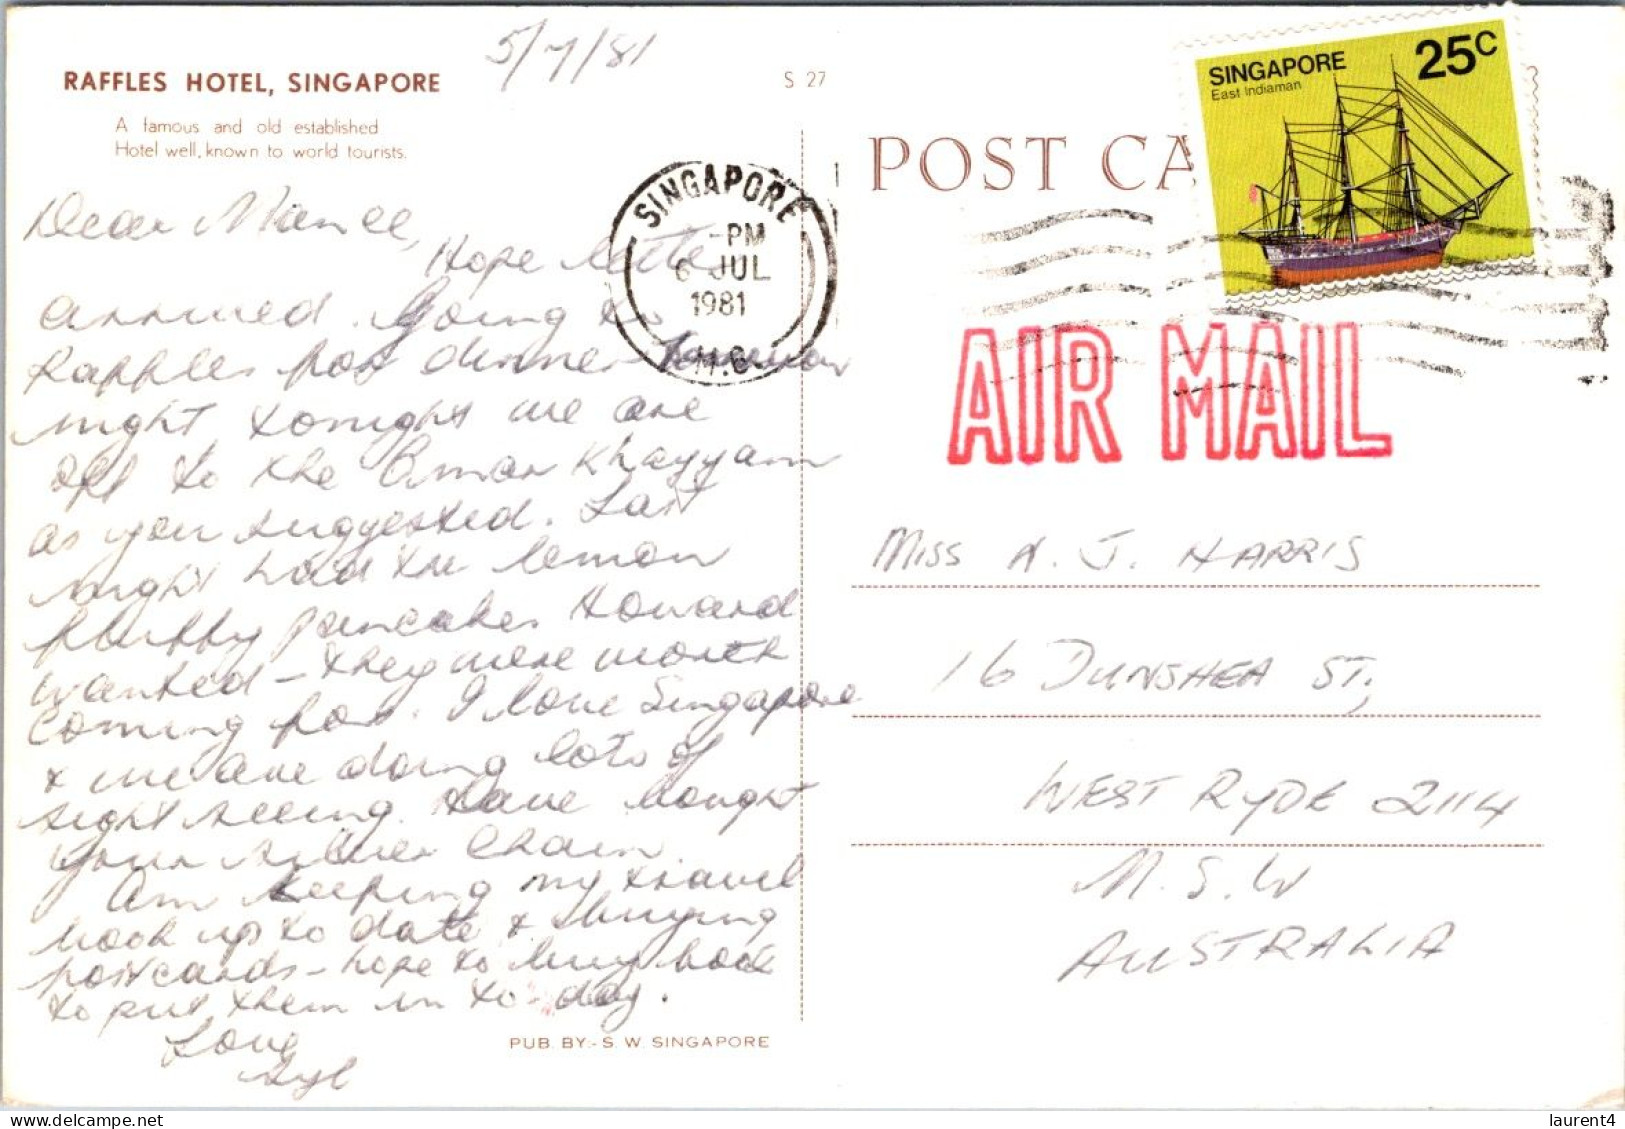 5/7/81
RAFFLES HOTEL, SINGAPORE
A famous and old established
Hotel well, known to world tourists.
S 27
Dear
Hope letter
arrived. Going to
Raffles for dinner tomorrow
night tonight we are
off to the Omar Khayyam
as you suggested. Last
night had the lemon
fluffy pancakes Howard
wanted – they were worth
coming for. I love Singapore
& we are doing lots of
sight seeing. Have bought
your silver chain.
Am keeping my travel
book up to date & buying
postcards – hope to buy book
to put them in to-day.
Love
Syl
PUB. BY:- S. W. SINGAPORE
SINGAPORE
-PM
6 JUL
1981
POST CA
SINGAPORE 25c
East Indiaman
AIR MAIL
MISS A. J. HARRIS
16 DUNSHEA ST,
WEST RYDE 2114
N.S.W
AUSTRALIA
laurent4